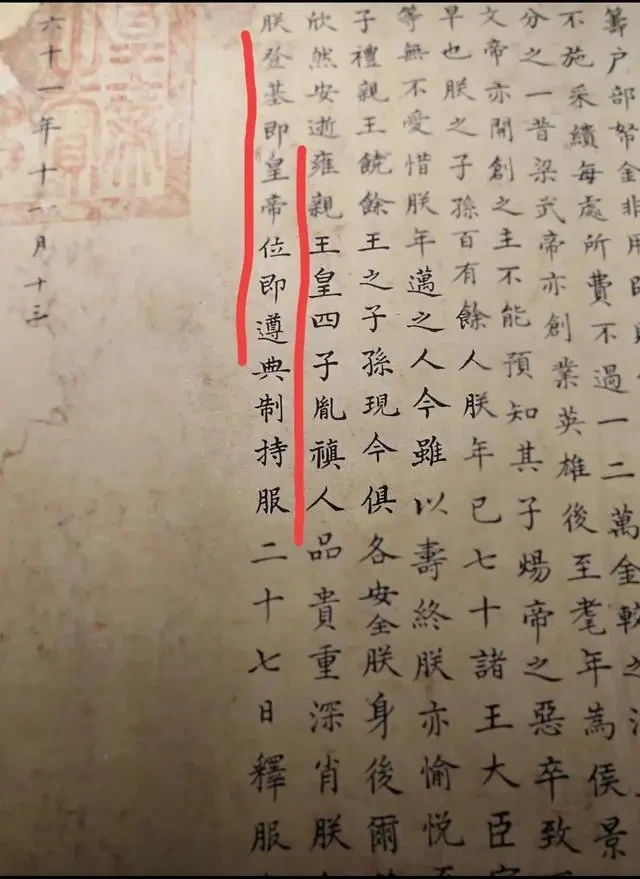 籌户部帑金非用師
不施采繢每處所費不過一二萬金較之
分之一昔梁武帝亦創業英雄後至耄年為侯景
文帝亦開創之主不能預知其子煬帝之惡卒致
早也朕之子孫百有餘人朕年已七十諸王大臣
等無不愛惜朕年邁之人今雖以壽終朕亦愉悦至
子禮親王饒餘王之子孫現今俱各安全朕身後爾
欣然安逝雍親王皇四子胤禛人品貴重深肖朕
朕登基即皇帝位即遵典制持服二十七日釋服
六十一年十一月十三